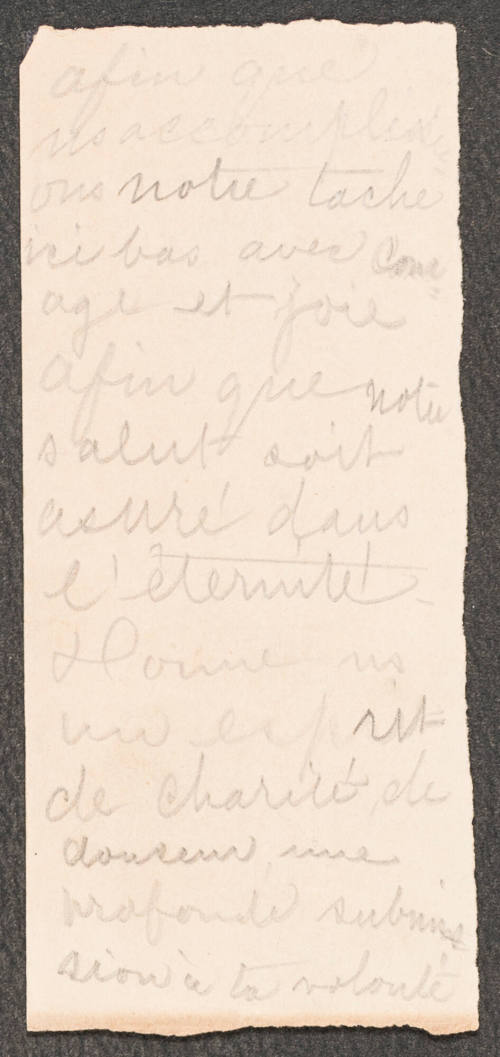 afin que
ns accompliss
ons notre tache
ici bas avec cour
age et joie
afin que notre
salut soit
assuré dans
l'éternité -
Donne ns
un esprit
de charité, de
douseur, une
profonde submis
sion à ta volonté